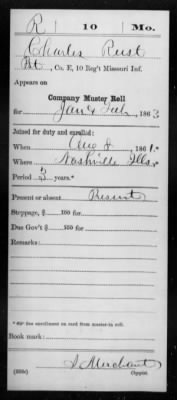 R 10 Mo.
Charles Rust
Pvt, Co. E, 10 Reg't Missouri Inf.
Appears on
Company Muster Roll
for Jan & Feb, 1863
Joined for duty and enrolled:
When Aug 8, 1861.*
Where Nashville Ills.
Period 3 years.*
Present or absent Present
Stoppage, $ 100 for
Due Gov't $ 100 for
Remarks:
* See enrollment on card from muster-in roll.
Book mark:
J Merchant
(358c) Copyist.